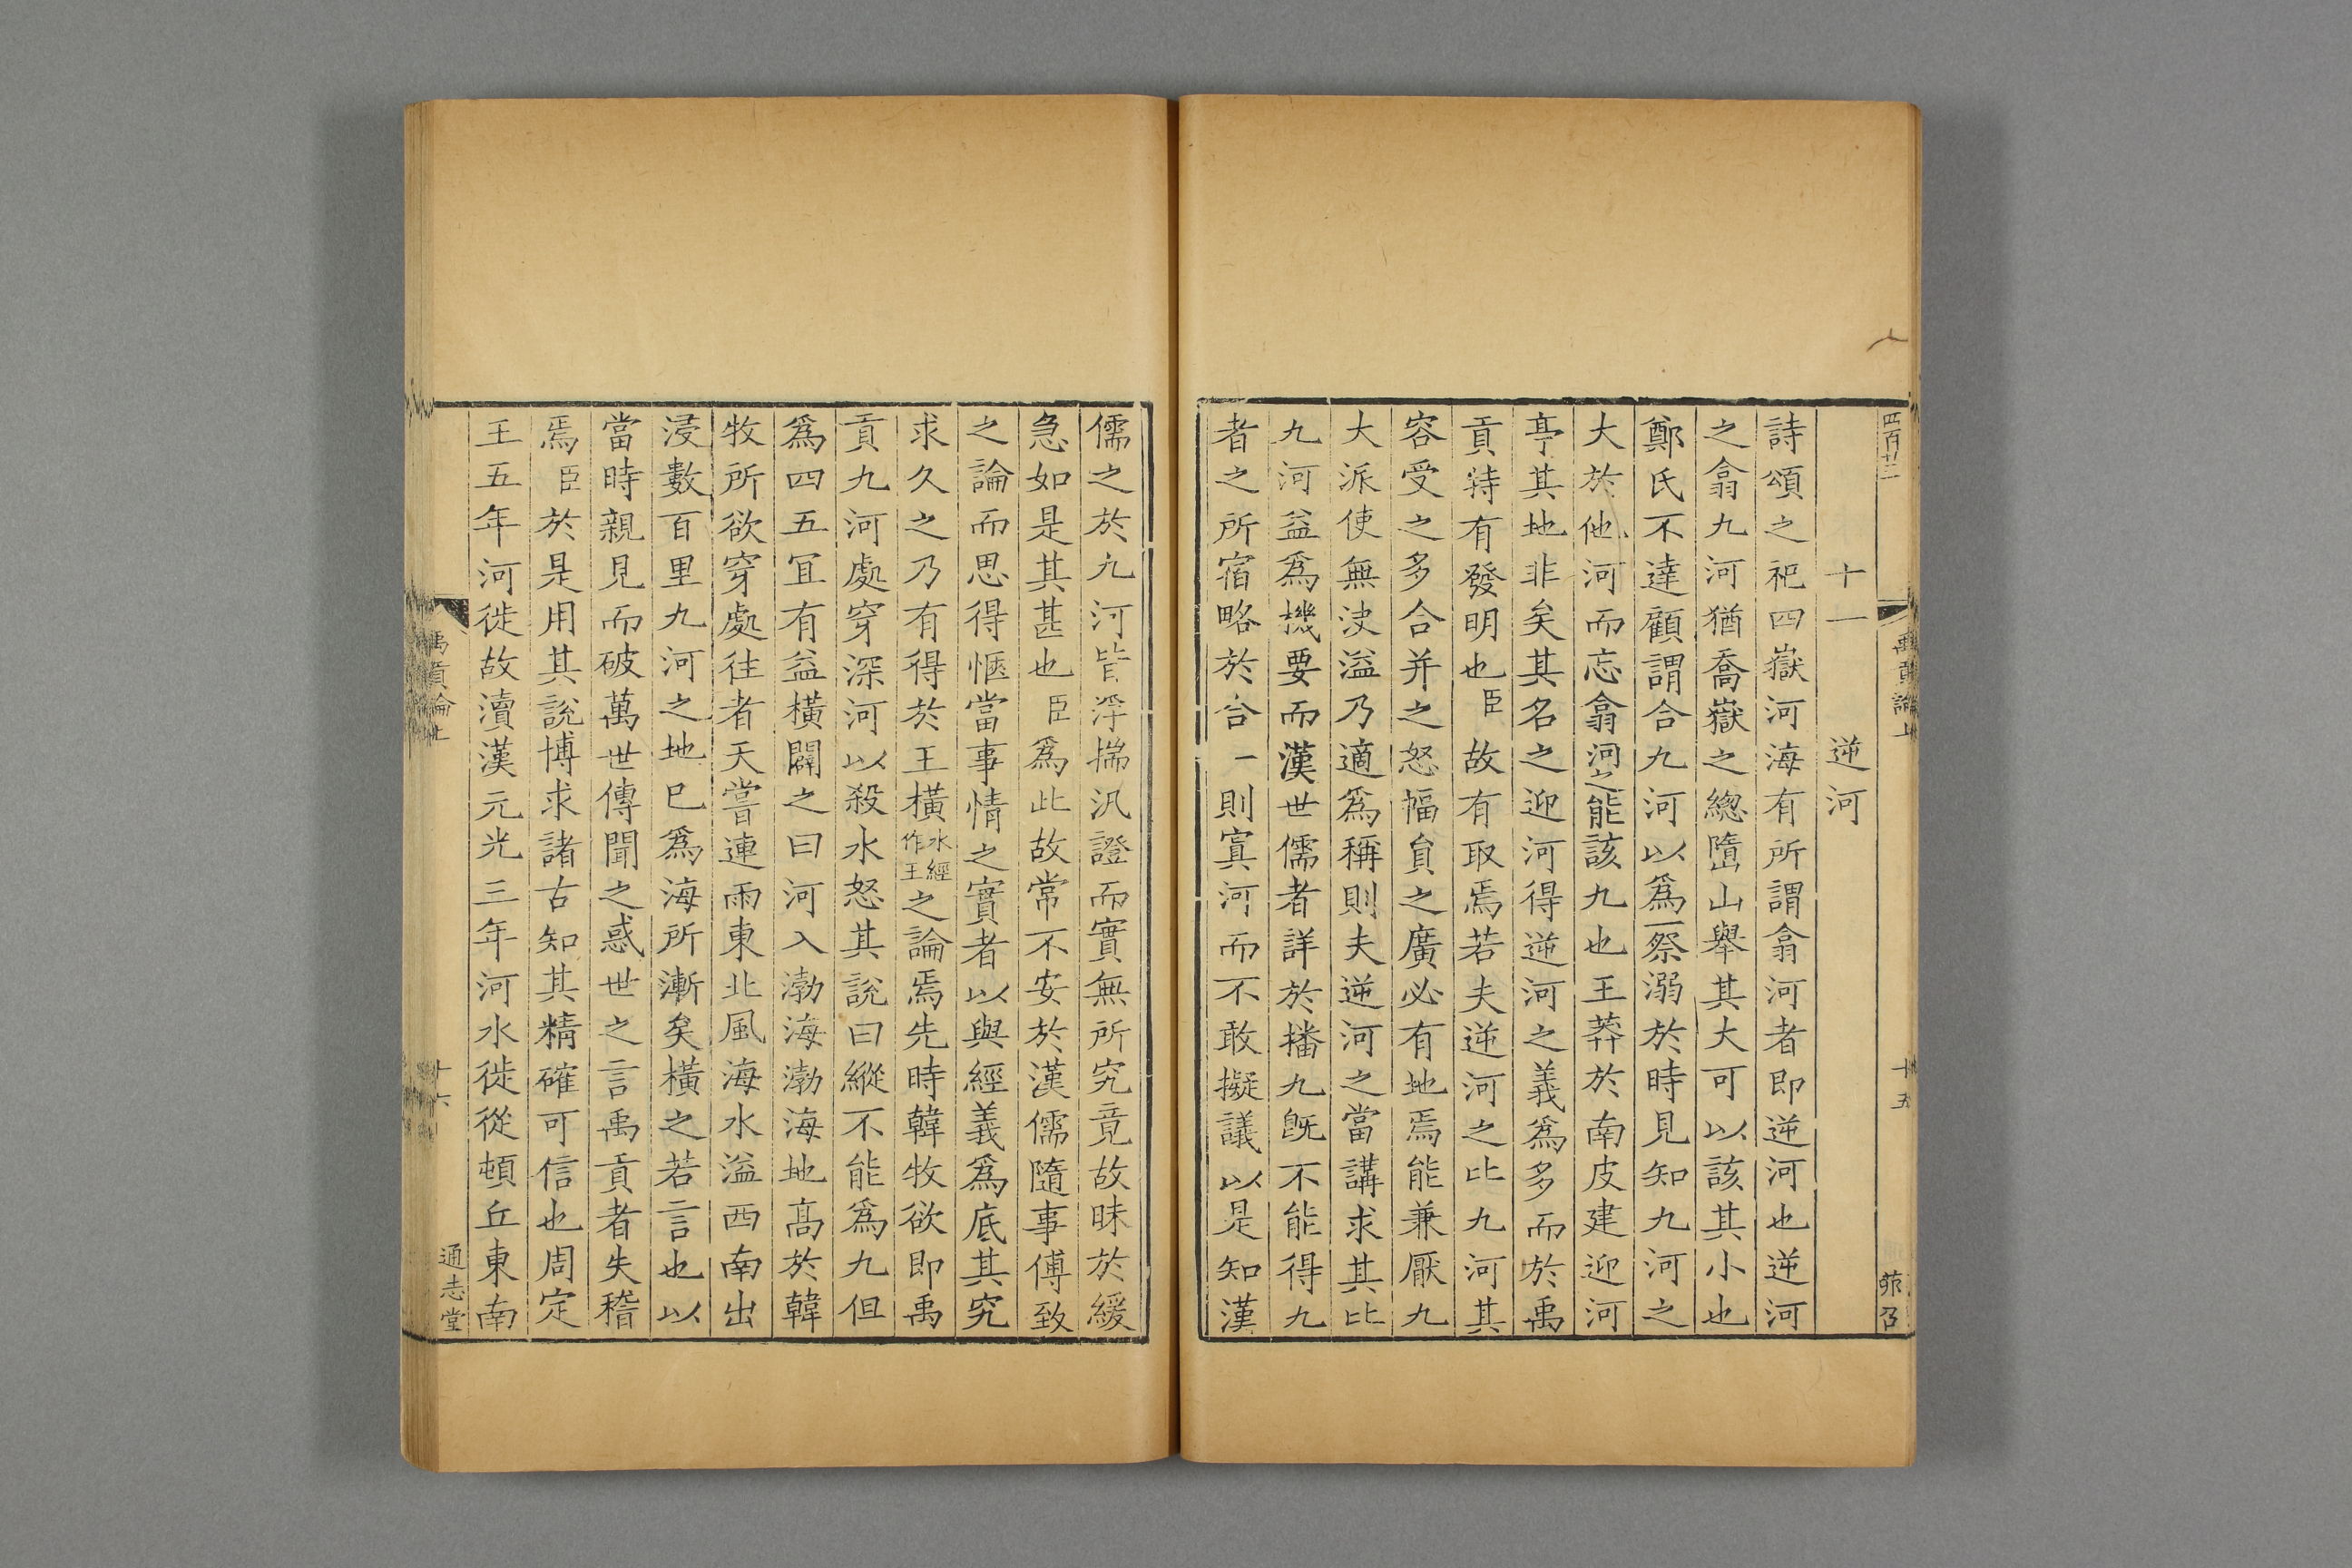 四百廿二
禹貢論上
十五
十一 逆河
詩頌之祀四嶽河海有所謂翕河者即逆河也逆河
之翕九河猶喬嶽之緫墮山舉其大可以該其小也
鄭氏不達顧謂合九河以爲一祭溺於時見知九河之
大於他河而忘翕河之能該九也王莽於南皮建迎河
亭其地非矣其名之迎河得逆河之義爲多而於禹
貢特有發明也臣故有取焉若夫逆河之比九河其
容受之多合并之怒幅員之廣必有地焉能兼厭九
大派使無决溢乃適爲稱則夫逆河之當講求其比
九河益爲機要而漢世儒者詳於播九旣不能得九
者之所宿略於合一則寘河而不敢擬議以是知漢
儒之於九河皆浮揣汎證而實無所究竟故昧於緩
急如是其甚也臣爲此故常不安於漢儒隨事傅致
之論而思得愜當事情之實者以與經義爲底其究
求久之乃有得於王橫水經作王之論焉先時韓牧欲即禹
貢九河處穿深河以殺水怒其說曰縱不能爲九但
爲四五宜有益橫闢之曰河入渤海渤海地髙於韓
牧所欲穿處往者天嘗連雨東北風海水溢西南出
浸數百里九河之地已爲海所漸矣橫之若言也以
當時親見而破萬世傳聞之惑世之言禹貢者失稽
焉臣於是用其說博求諸古知其精確可信也周定
王五年河徙故瀆漢元光三年河水徙從頓丘東南
禹貢論上
十六
通志堂